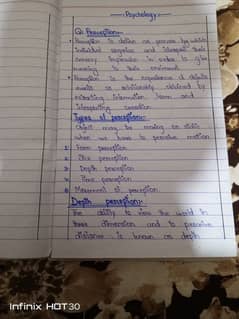 Psychology
Q: Perception:-
Perception is define as process by which
individual organize and interpret their
sensory impression in order to give
meaning to their environment
Perception is the experience of objects
events or relationship obtained by
extracting information from and
interpreting sensation
Types of perception:-
Object may be moving or static
when we have to perceive motion
1: Form perception
2: Size perception
3: Depth perception
4: Time perception
5: Movement of perception
Depth perception:-
The ability to view the world in
three dimension and to perceive
distance is known as depth
Infinix HOT 30